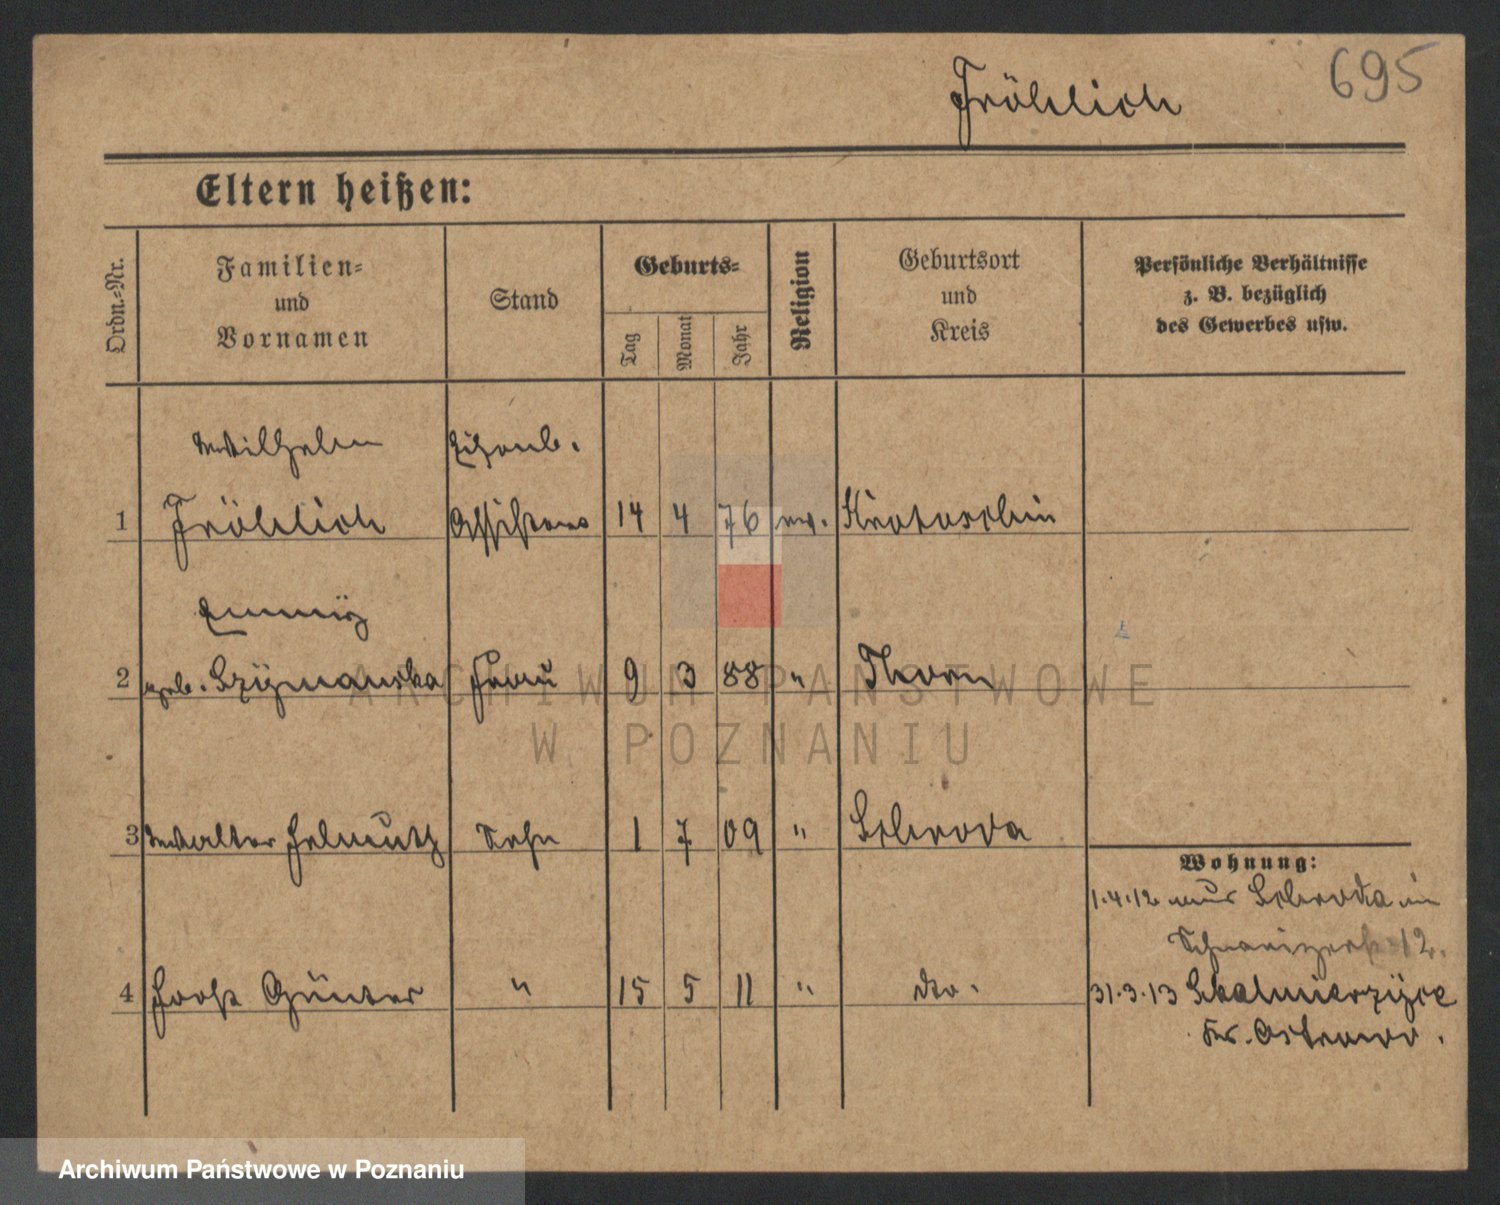 695
Fröhlich
Eltern heißen:
Ordn.-Nr.
Familien-
und
Vornamen
Stand
Geburts-
Tag
Monat
Jahr
Religion
Geburtsort
und
Kreis
Persönliche Verhältnisse
z. B. bezüglich
des Gewerbes usw.
Wilhelm Eisenb.
1 Fröhlich Assistent 14 4 76 ev. Krotoschin
Emmy
2 geb. Szÿmanska Frau 9 3 88 " Thorn
3 Walter Helmuth Sohn 1 7 09 " Schroda
Wohnung:
1.4.12 aus Schroda in
12.
4 Horst Günter " 15 5 11 " do. 31.3.13 Skalmierzÿce
Kr. Ostrowo.
ARCHIWUM PAŃSTWOWE
W POZNANIU
Archiwum Państwowe w Poznaniu